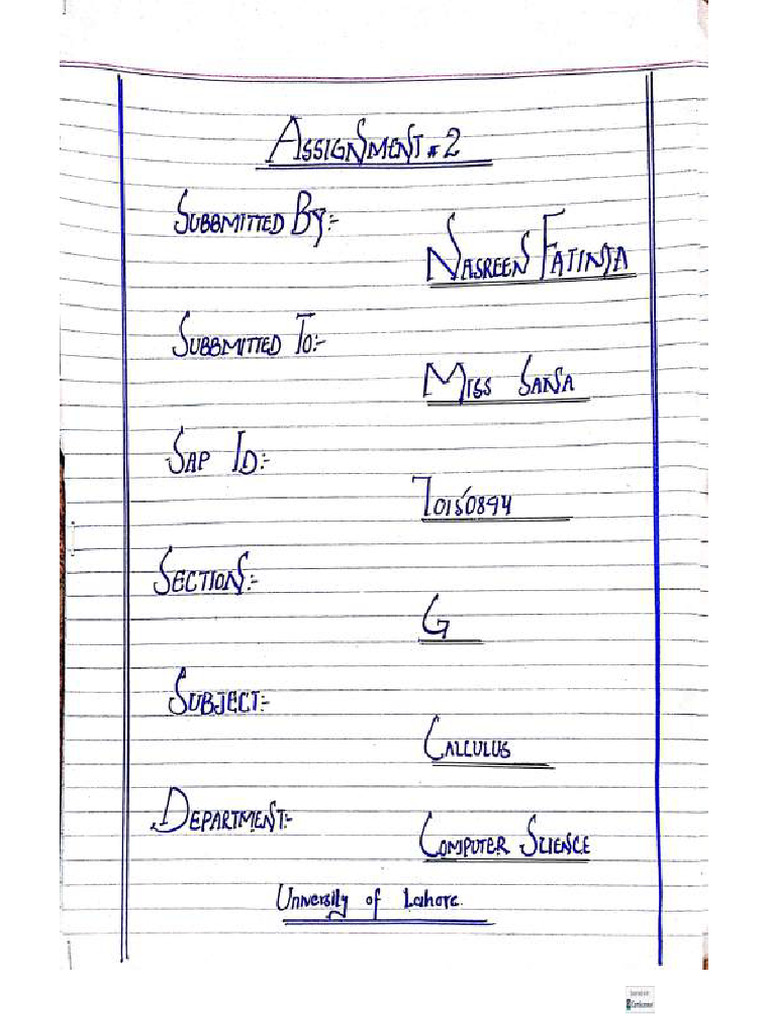 ASSIGNMENT #2
SUBBMITTED BY:-
NASREEN FATIMA
SUBBMITTED TO:-
MISS SANA
SAP ID:-
70150894
SECTION:-
G
SUBJECT:-
CALCULUS
DEPARTMENT:-
COMPUTER SCIENCE
University of Lahore.
CamScanner